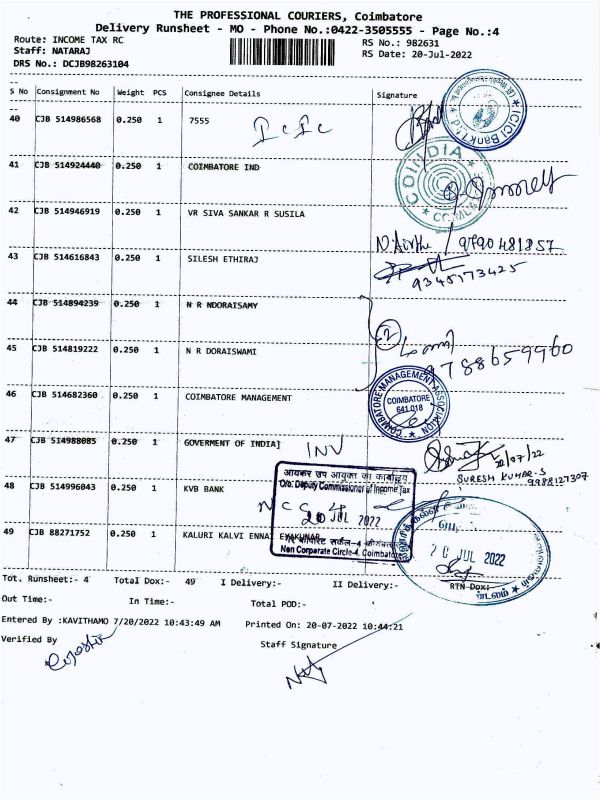 THE PROFESSIONAL COURIERS, Coimbatore
Delivery Runsheet - MO - Phone No.:0422-3505555 - Page No.:4
Route: INCOME TAX RC RS No.: 982631
Staff: NATARAJ RS Date: 20-Jul-2022
DRS No.: DCJB98263104
S No Consignment No Weight PCS Consignee Details Signature
40 CJB 514986568 0.250 1 7555
ICICI Bank Ltd.
41 CJB 514924440 0.250 1 COIMBATORE IND
COINDIA
42 CJB 514946919 0.250 1 VR SIVA SANKAR R SUSILA
9790481857
43 CJB 514616843 0.250 1 SILESH ETHIRAJ
9345173425
44 CJB 514894239 0.250 1 N R NDORAISAMY
2
45 CJB 514819222 0.250 1 N R DORAISWAMI
9788659960
46 CJB 514682360 0.250 1 COIMBATORE MANAGEMENT
COIMBATORE MANAGEMENT ASSOCIATION
COIMBATORE
641.018
47 CJB 514988085 0.250 1 GOVERMENT OF INDIA]
INV
20/07/22
SURESH KUMAR.S
आयकर उप आयुक्त का कार्यालय
O/o. Deputy Commissioner of Income Tax
48 CJB 514996043 0.250 1 KVB BANK
NC
20 JUL 2022
49 CJB 88271752 0.250 1 KALURI KALVI ENNAI EYAKUNAR
Non Corporate Circle-4, Coimbatore
20 JUL 2022
Tot. Runsheet:- 4 Total Dox:- 49 I Delivery:- II Delivery:- RTN Dox:
Out Time:- In Time:- Total POD:-
Entered By :KAVITHAMO 7/20/2022 10:43:49 AM Printed On: 20-07-2022 10:44:21
Verified By Staff Signature